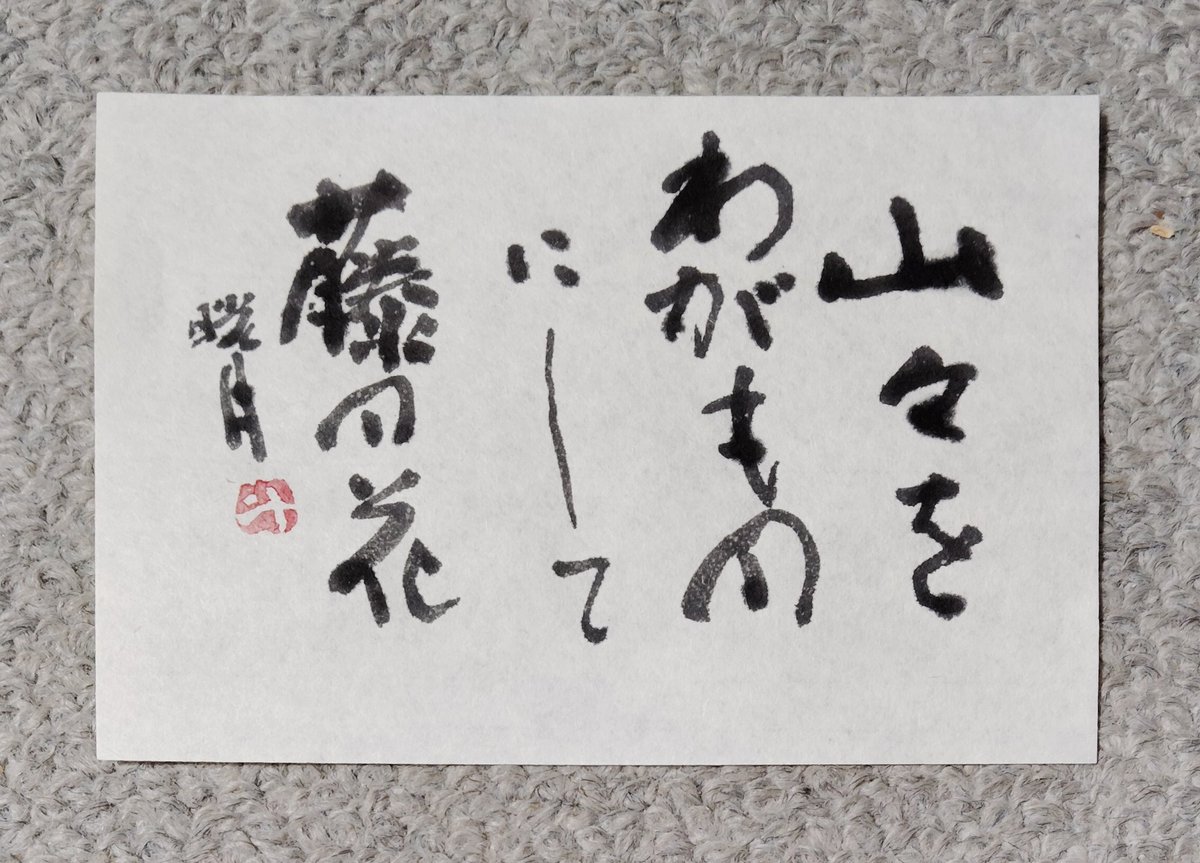 山々を
わがもの
にして
藤の花